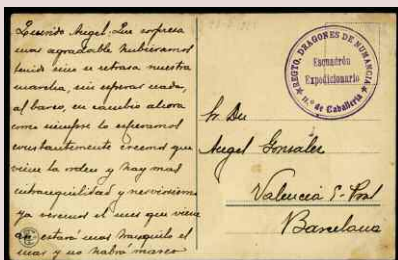 Querido Angel: Que sorpresa
mas agradable hubieramos
tenido sino se retrasa nuestra
marcha, sin esperar nada,
al barco, en cambio ahora
como siempre lo esperamos
constantemente creemos que
viene la orden y hay mas
intranquilidad y nerviosismo
ya veremos el mes que viene
estará mas tranquilo el
mar y no habrá mareo
REGTO. DRAGONES DE NUMANCIA
Escuadrón
Expedicionario
de Caballería
Sr. Don
Angel Gonsalez
Valencia 5-Pral
Barcelona